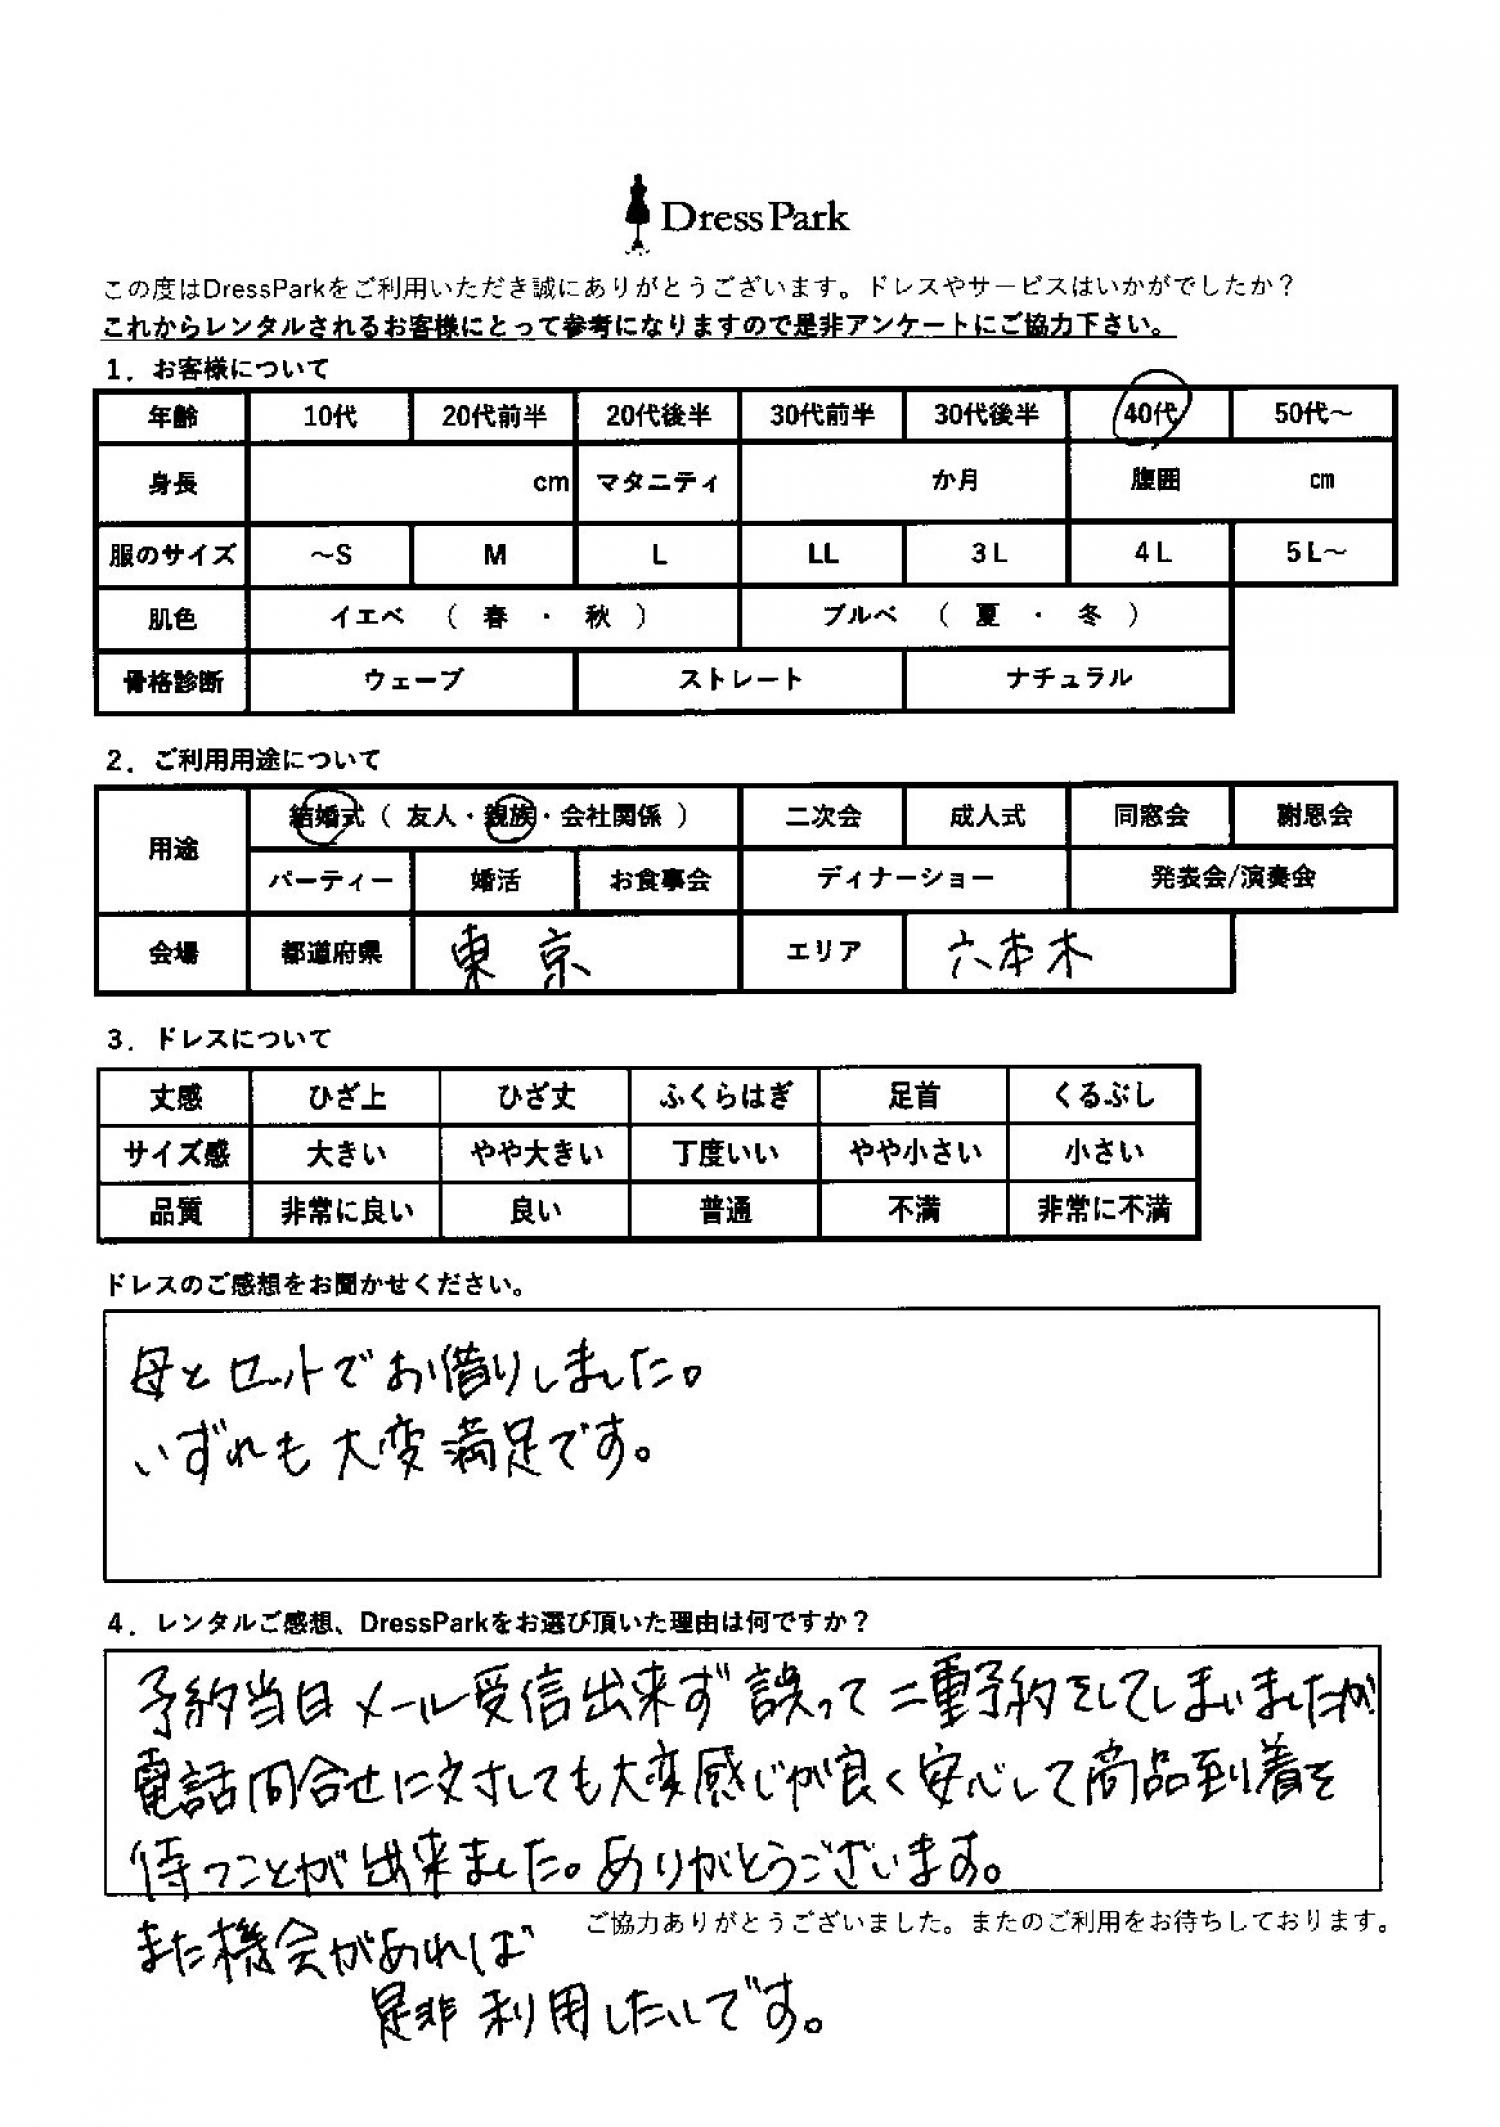 Dress Park
この度はDressParkをご利用いただき誠にありがとうございます。ドレスやサービスはいかがでしたか？
これからレンタルされるお客様にとって参考になりますので是非アンケートにご協力下さい。
1．お客様について
年齢 10代 20代前半 20代後半 30代前半 30代後半 40代 50代～
身長 cm マタニティ か月 腹囲 ㎝
服のサイズ ～S M L LL 3L 4L 5L～
肌色 イエベ （ 春 ・ 秋 ） ブルベ （ 夏 ・ 冬 ）
骨格診断 ウェーブ ストレート ナチュラル
2．ご利用用途について
用途 結婚式（ 友人・親族・会社関係 ） 二次会 成人式 同窓会 謝恩会
パーティー 婚活 お食事会 ディナーショー 発表会/演奏会
会場 都道府県 東京 エリア 六本木
3．ドレスについて
丈感 ひざ上 ひざ丈 ふくらはぎ 足首 くるぶし
サイズ感 大きい やや大きい 丁度いい やや小さい 小さい
品質 非常に良い 良い 普通 不満 非常に不満
ドレスのご感想をお聞かせください。
母とセットでお借りしました。
いずれも大変満足です。
4．レンタルご感想、DressParkをお選び頂いた理由は何ですか？
予約当日メール受信出来ず誤って二重予約をしてしまいましたが
電話問合せに対しても大変感じが良く安心して商品到着を
待つことが出来ました。ありがとうございます。
ご協力ありがとうございました。またのご利用をお待ちしております。
また機会があれば
是非利用したいです。